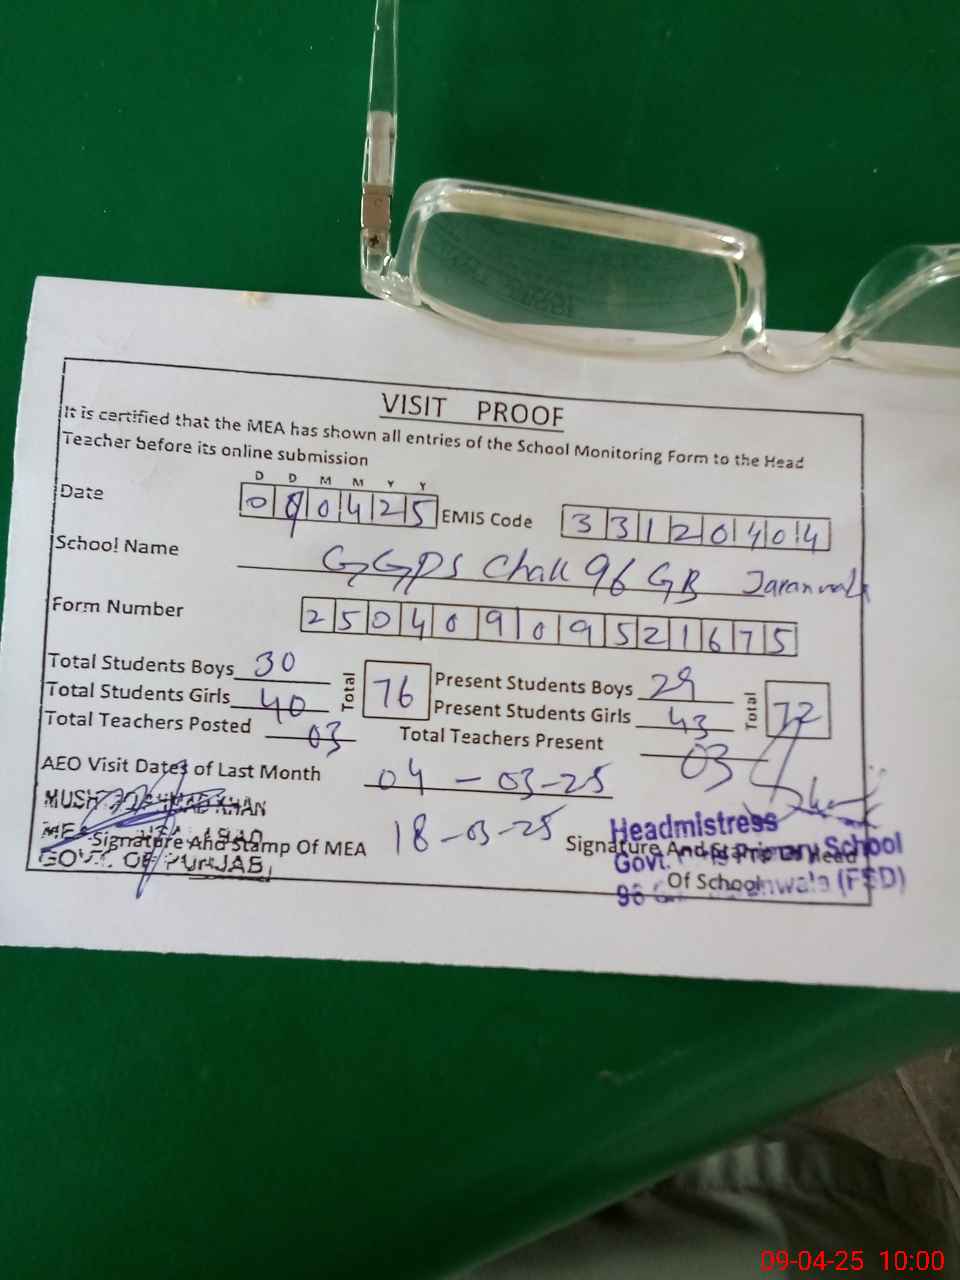 VISIT PROOF
It is certified that the MEA has shown all entries of the School Monitoring Form to the Head
Teacher before its online submission
D D M M Y Y
Date 0 9 0 4 2 5 EMIS Code 3 3 1 2 0 4 0 4
School Name GGPS Chak 96 GB Jaranwala
Form Number 2 5 0 4 0 9 0 9 5 2 1 6 7 5
Total Students Boys 30 Total 76 Present Students Boys 29 Total 72
Total Students Girls 40 Present Students Girls 43
Total Teachers Posted 03 Total Teachers Present 03
AEO Visit Dates of Last Month 04-03-25
18-03-25
KHAN
Signature And Stamp Of MEA
GOVT. OF PUNJAB
Signature And Stamp Of Head
Of School
Headmistress
Govt. Primary School
96 (FSD)
09-04-25 10:00